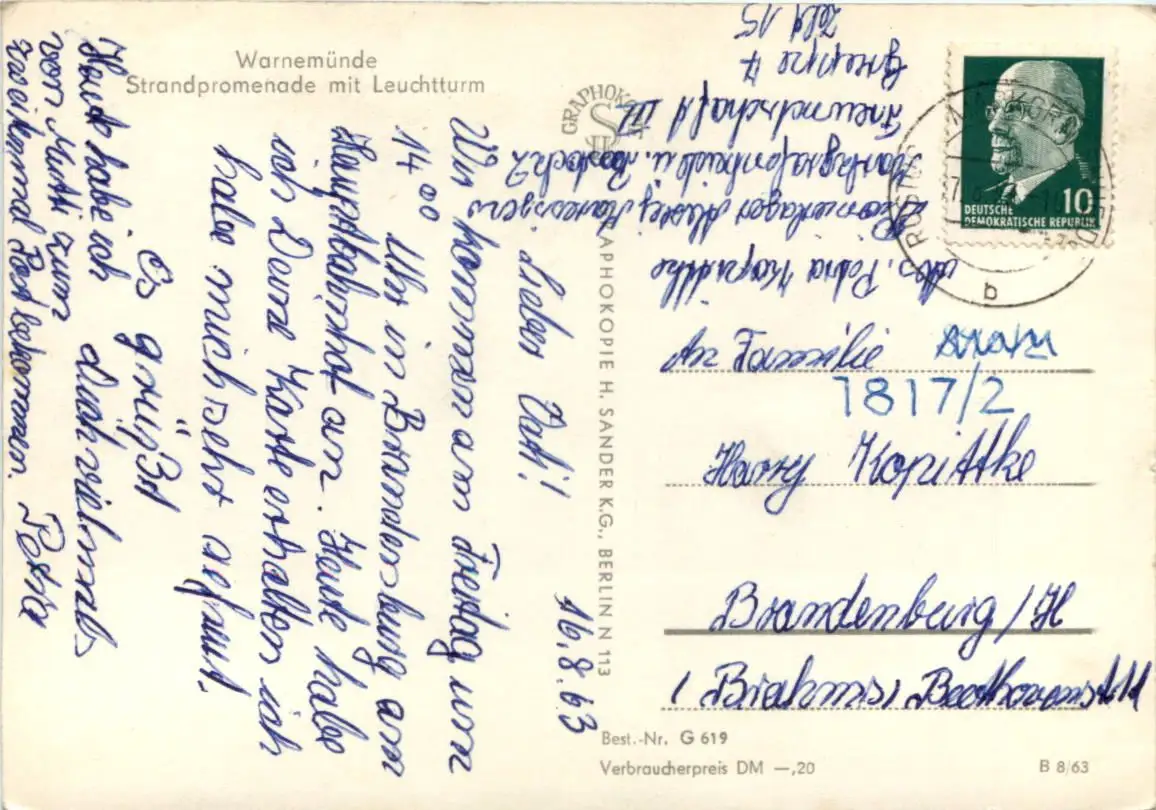 Warnemünde
Strandpromenade mit Leuchtturm
16.8.63
Lieber Vati!
Wir kommen am Freitag um
14 00 Uhr in Brandenburg am
Hauptbahnhof an. Heute habe
ich Deine Karte erhalten ich
habe mich sehr gefreut.
Es grüßt
Dich vielmals
Petra
Heute habe ich
von Mutti zum
zweitenmal Post bekommen.
GRAPHOKOPIE H. SANDER K.G., BERLIN N 113
Abs. Petra Kopittke
Rostock 2
Freundschaft III
Gruppe 7
Zelt 15
10
DEUTSCHE
DEMOKRATISCHE REPUBLIK
b
An Familie
1817/2
Harry Kopittke
Brandenburg/H
Best.-Nr. G 619
Verbraucherpreis DM —,20
B 8/63